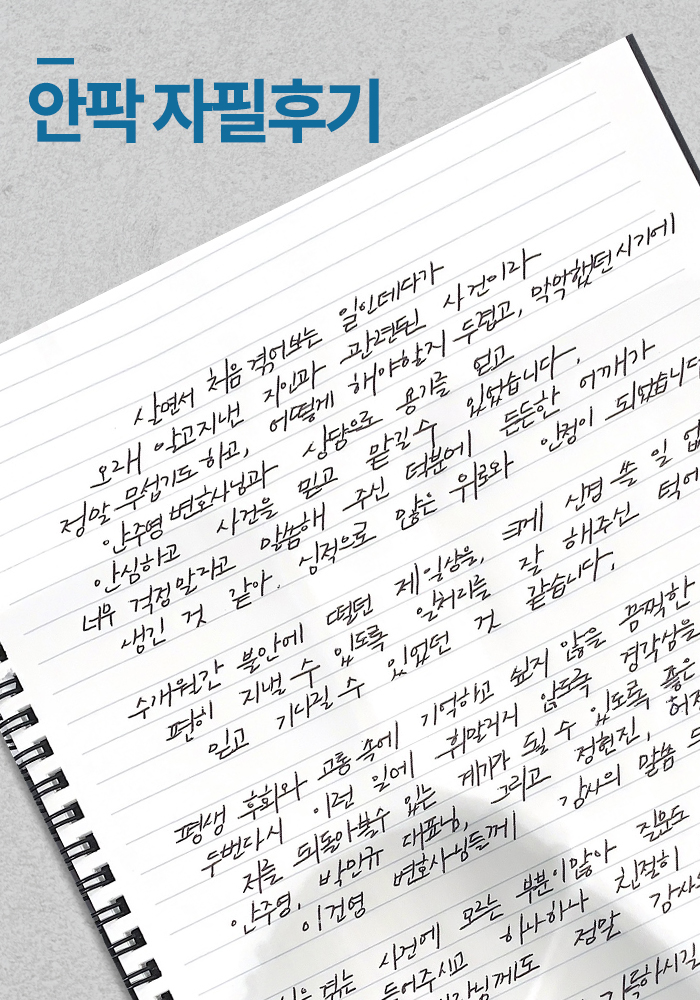 안팍 자필후기
살면서 처음 겪어보는 일인데다가
오래 알고지낸 지인과 관련된 사건이라
정말 무섭기도 하고, 어떻게 해야할지 두렵고, 막막했던 시기에
안주영 변호사님과 상담으로 용기를 얻고
안심하고 사건을 믿고 맡길 수 있었습니다.
너무 걱정말라고 말씀해 주신 덕분에 든든한 어깨가
생긴 것 같아. 심적으로 많은 위로와 안정이 되었습니다
수개월간 불안에 떨던 제 일상을, 크게 신경 쓸 일 없
편히 지낼 수 있도록 일처리를 잘 해주신 덕에
믿고 기다릴 수 있었던 것 같습니다.
평생 후회와 고통 속에 기억하고 싶지 않을 끔찍한
두번다시 이런 일에 휘말리지 않도록 경각심을
저를 되돌아볼수 있는 계기가 될 수 있도록 좋은
안주영, 박만규 대표님, 그리고 정현진, 허
이건영 변호사님들께 감사의 말씀 드
겪는 사건에 모르는 부분이 많아 질문도
들어주시고 하나하나 친절히
님께도 정말 감사
가득하시길